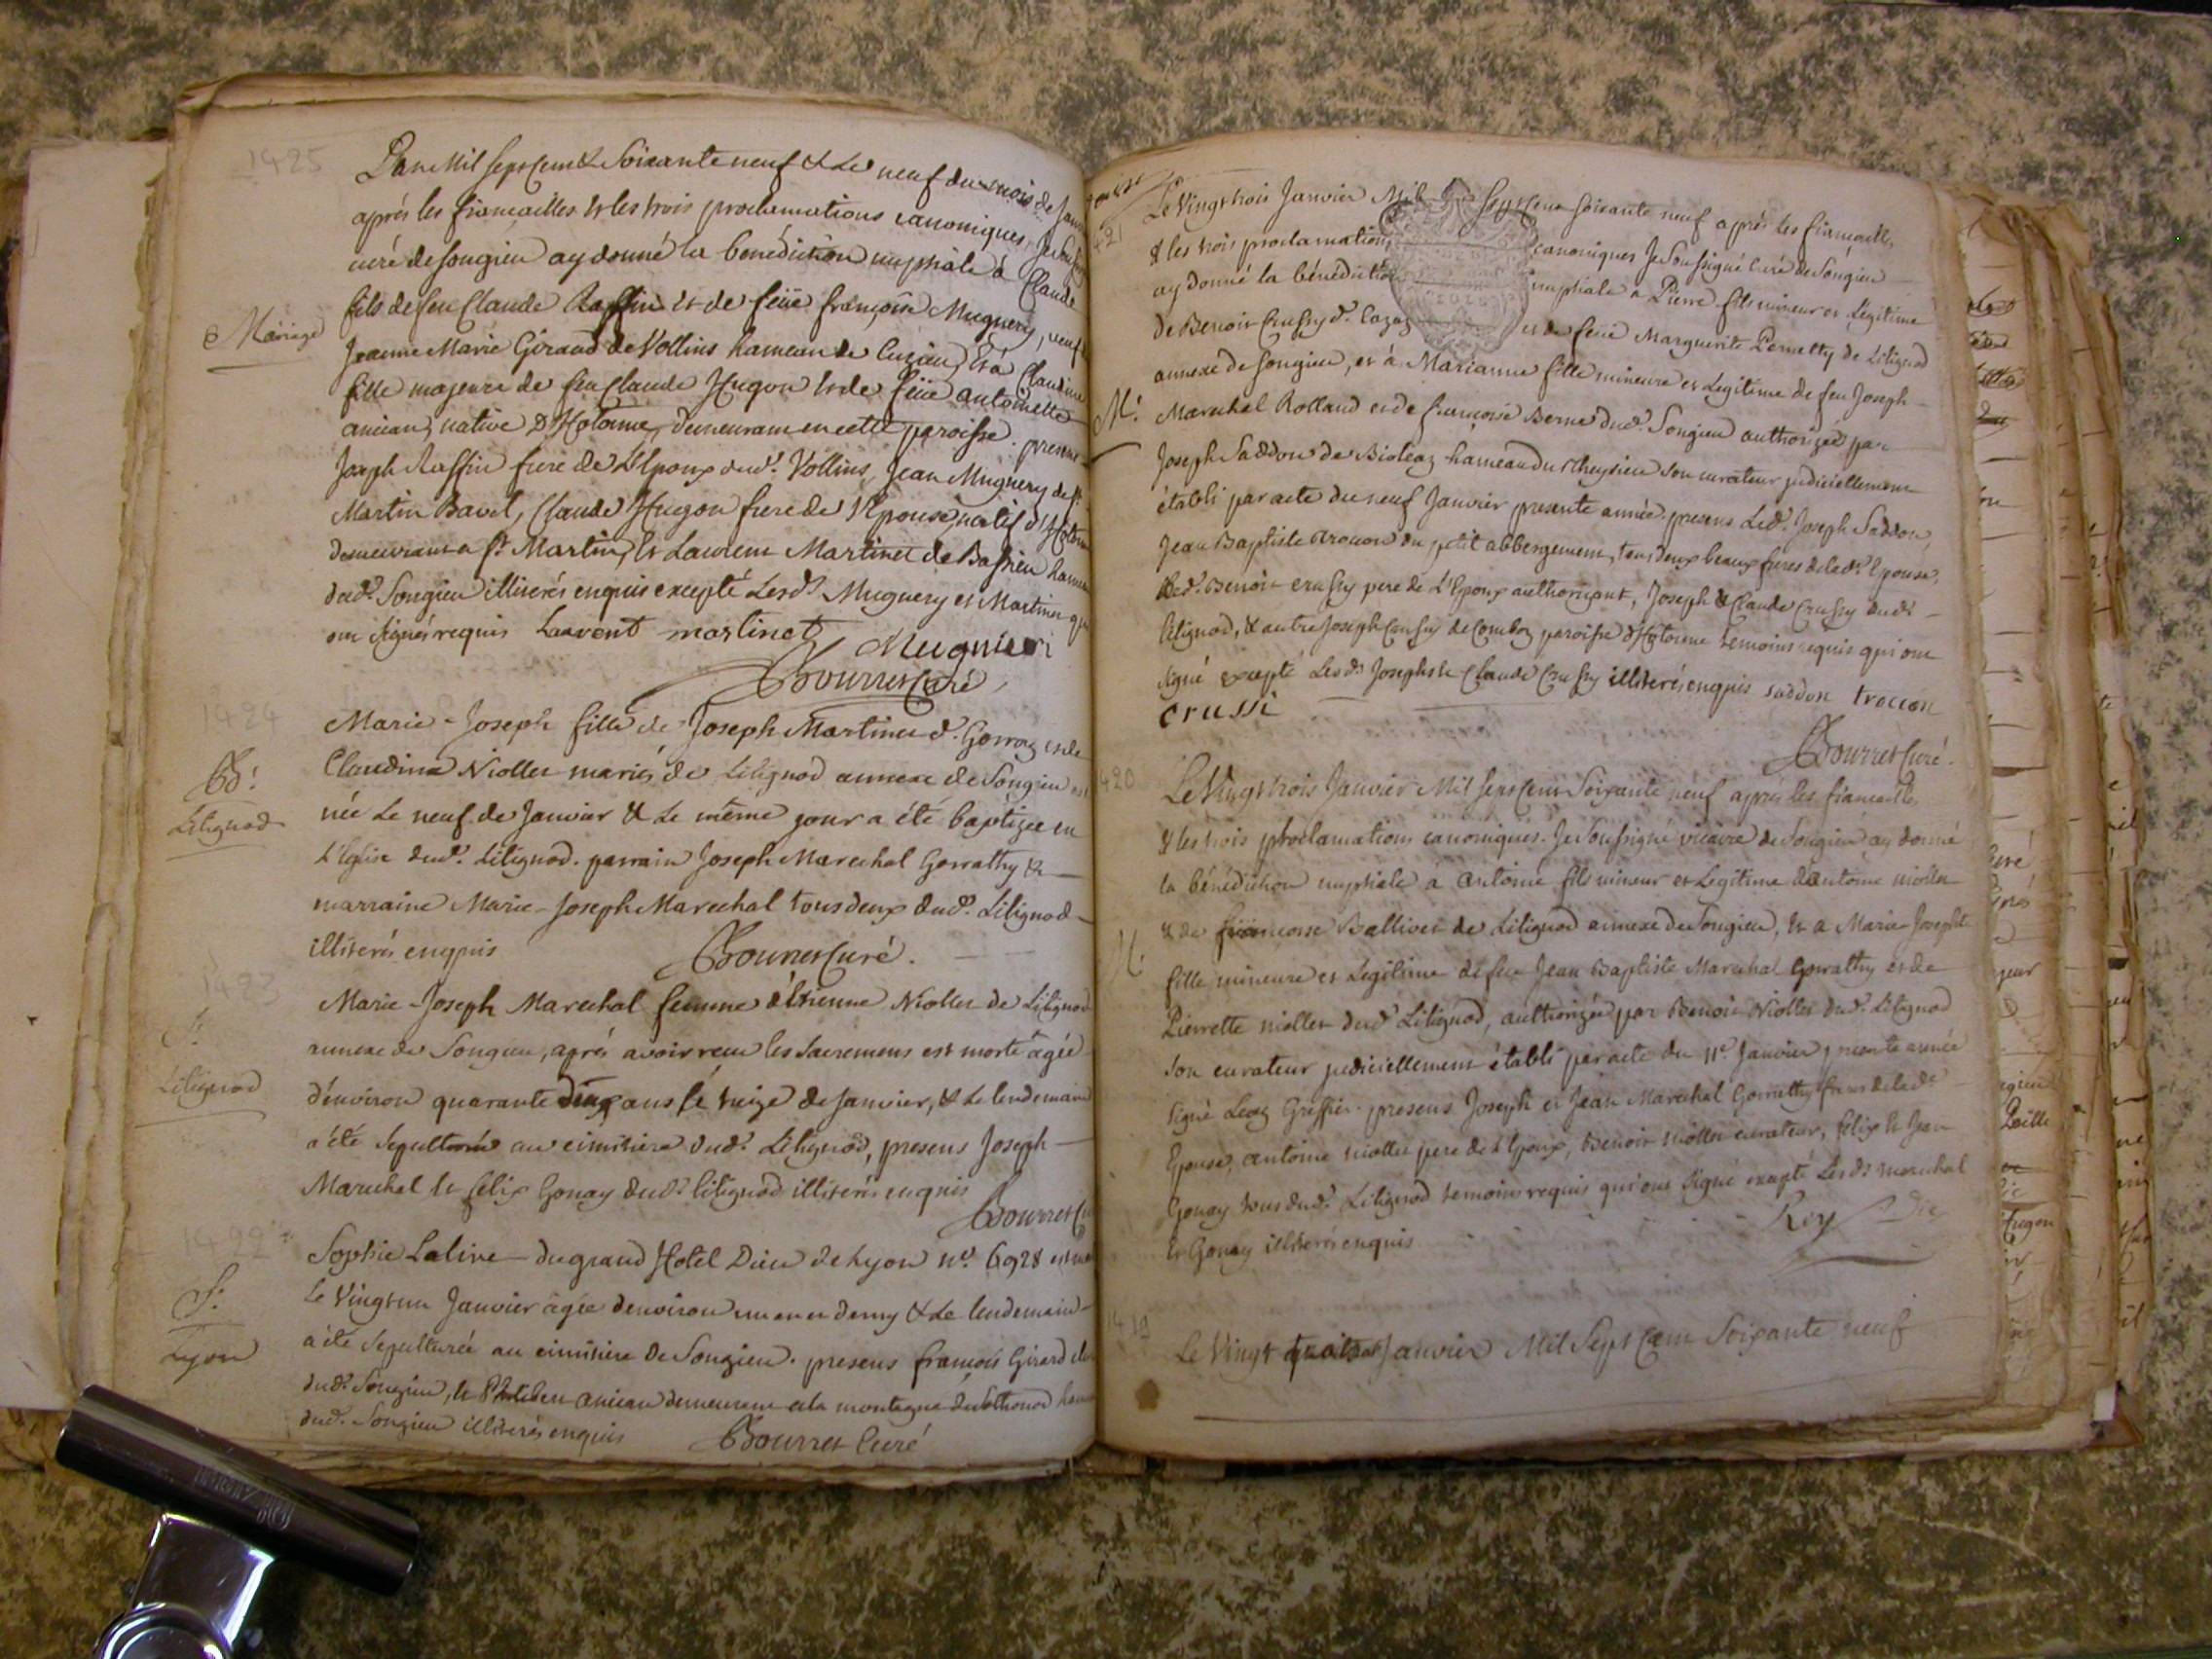 1425
L'an Mil sept Cent Soixante neuf & Le neuf du mois de Janv
après les fiançailles & les trois proclamations canoniques, Je Sous
curé de Songieu ay donné la benédiction nuptiale à Claude
Mariage
fils de feu Claude Raffin & de feüe françoise Mugnery, veuf
Jeanne Marie Giraud de Vollins hameau de Luzieu, & à Claudine
fille majeure de feu Claude Hugon & de feüe antoinette
ancian, native D'Hotonne, demeurant en cette paroisse. presens
Joseph Raffin frere de L'Epoux dud.t Vollins, Jean Mugnery de St
Martin Bavel, Claude Hugon frere de l'Epouse natif d'Hotonn
demeurant a St Martin, & Laurent Martinet de Bassieu hame
dud.t Songieu illiterés enquis excepté Lesd.ts Mugnery et Martinet qu
ont signés requis Laurent martinet Mugnieri
Bourret Curé
1424
B.
Litignod
Marie-Joseph fille de Joseph Martinet d.t Gorraz et de
Claudine Niollet mariés de Litignod annexe de Songieu est
née Le neuf de Janvier & Le même jour a été baptizée en
L'Eglise dud.t Litignod. parrain Joseph Marechal Gorrathy &
marraine Marie-Joseph Marechal tous deux dud.t Litignod
illiterés enquis Bourret Curé.
1423
S.
Litignod
Marie-Joseph Marechal femme d'Etienne Niollet de Litignod
annexe de Songieu, après avoir reçu les Sacremens est morte agée
d'environ quarante deux ans le treize de Janvier, & Le lendemain
a été Sepulturée au cimitiere dud.t Litignod, presens Joseph
Marechal & felix Gonay dud.t litignod illiterés enquis
Bourret Cu
1422
S.
Lyon
Sophie Lalive du grand Hotel Dieu de Lyon n.o 6928 est mo
Le Vingt un Janvier agée d'environ un an et demy & Le lendemain
a été Sepulturée au cimitiere de Songieu. presens françois Girard
dud.t Songieu, & Philibert ancian demeurant a la montagne de Sothonod ham
dud.t Songieu illiterés enquis Bourret Curé
421
Le Vingt trois Janvier Mil Sept Cent soixante neuf après les fiançailles
& les trois proclamations canoniques Je Soussigné Curé de Songieu
ay donné la bénédiction nuptiale à Pierre fils mineur et Légitime
de Benoit Crussy d.t Cazaz et de feüe Marguerite Pernetty de Litignod
annexe de Songieu, et à Marianne fille mineure et Legitime de feu Joseph
M.
Marechal Rolland et de françoise Berne dud.t Songieu authorizée par
Joseph Saddon de Bioleaz hameau du Cheysieu son curateur judiciellement
établi par acte du neuf Janvier presente année. presens Led.t Joseph Saddon,
Jean Baptiste trocon du petit abbergement, tous deux beaux freres de lad.te Epouse,
Led.t Benoit crussy pere de L'Epoux authorizant, Joseph & Claude Crussy dud.t
litignod, & autre Joseph Crussy de Comboz paroisse d'Hotonne temoins requis qui ont
signé excepté Lesd.ts Josephs & Claude Crussy illiterés enquis saddon troccon
crussi
Bourret Curé.
420
Le Vingt trois Janvier Mil Sept Cent Soixante neuf après les fiançailles
& les trois proclamations canoniques. Je Soussigné vicaire de Songieu ay donné
la bénédiction nuptiale à antoine fils mineur et Legitime d'antoine niollet
M.
& de françoise Ballivet de Litignod annexe de Songieu, & a Marie Josephte
fille mineure et Legitime de feu Jean Baptiste Marechal Gorrathy et de
Pierrette niollet dud.t Litignod, authorizée par Benoit Niollet dud.t Litignod
son curateur judiciellement établi par acte du 11e Janvier presente année
signé Greffier. presens Joseph et Jean Marechal Gorrathy freres de lad.te
Epouse, antoine niollet pere de L'Epoux, Benoit niollet curateur, felix & Jean
Gonay tous dud.t Litignod temoins requis qui ont signé excepté Lesd.ts marechal
& Gonay illiterés enquis Rey
1419
Le Vingt quatre Janvier Mil Sept Cent Soixante neuf